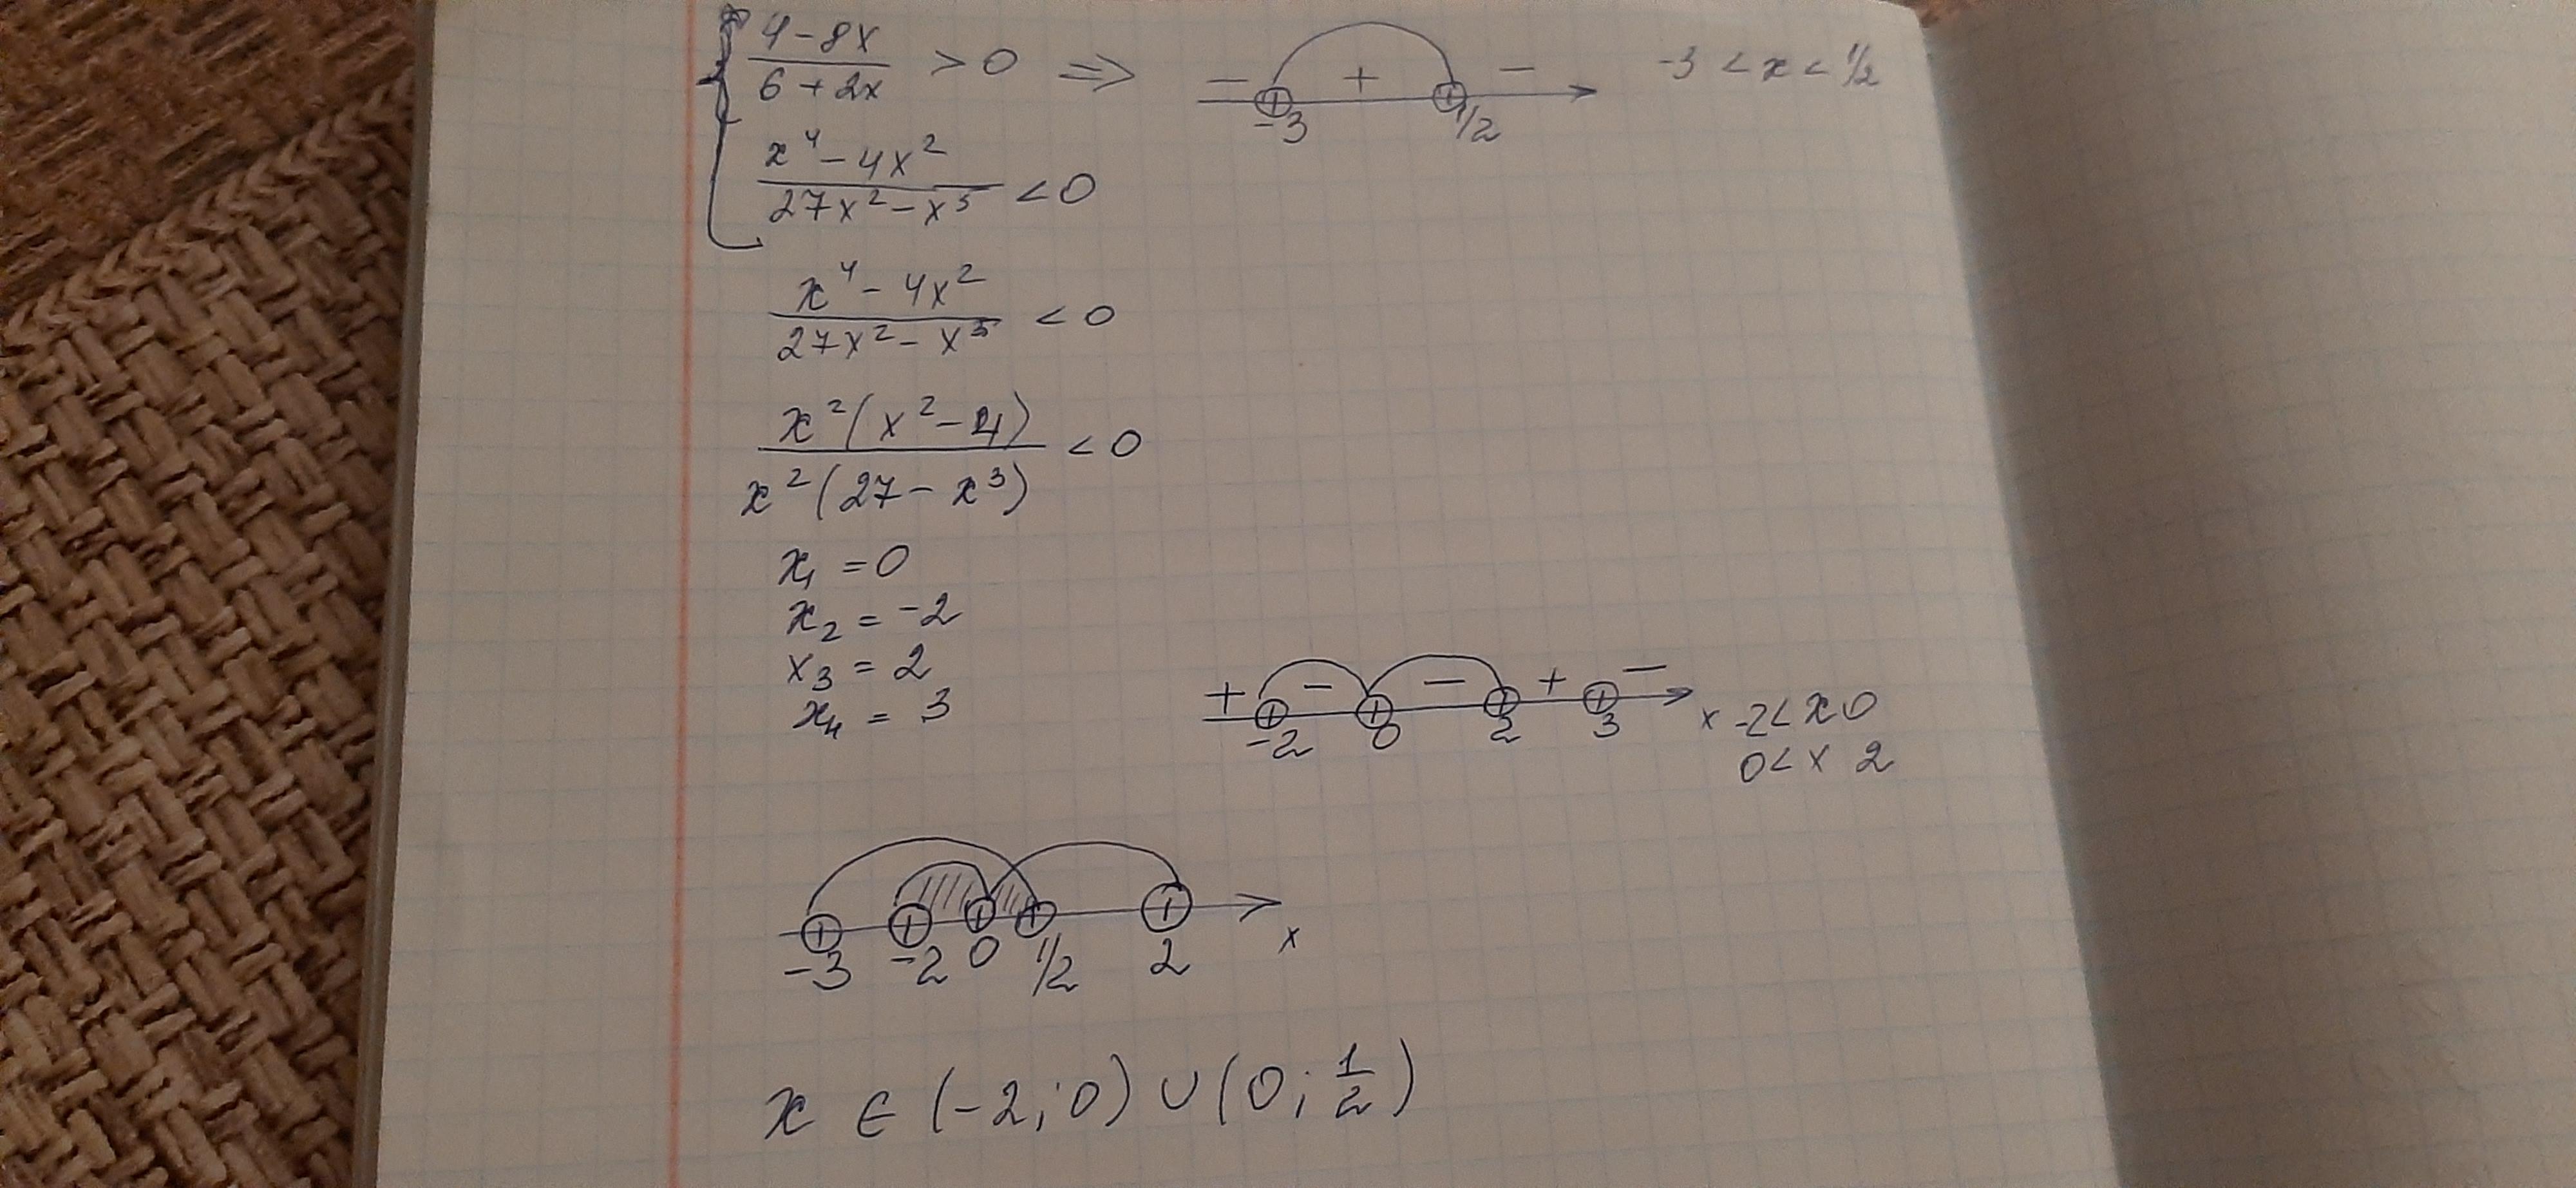 (4-8x)/(6+2x) > 0 ⇒ - -3 + 1/2 - -3 < x < 1/2
(x⁴-4x²)/(27x²-x⁵) < 0
(x⁴-4x²)/(27x²-x⁵) < 0
x²(x²-4)/x²(27-x³) < 0
x₁ = 0
x₂ = -2
x₃ = 2
x₄ = 3
+ - - + -
-2 0 2 3 x -2< x 0
0< x 2
-3 -2 0 1/2 2 x
x ∈ (-2; 0) ∪ (0; 1/2)